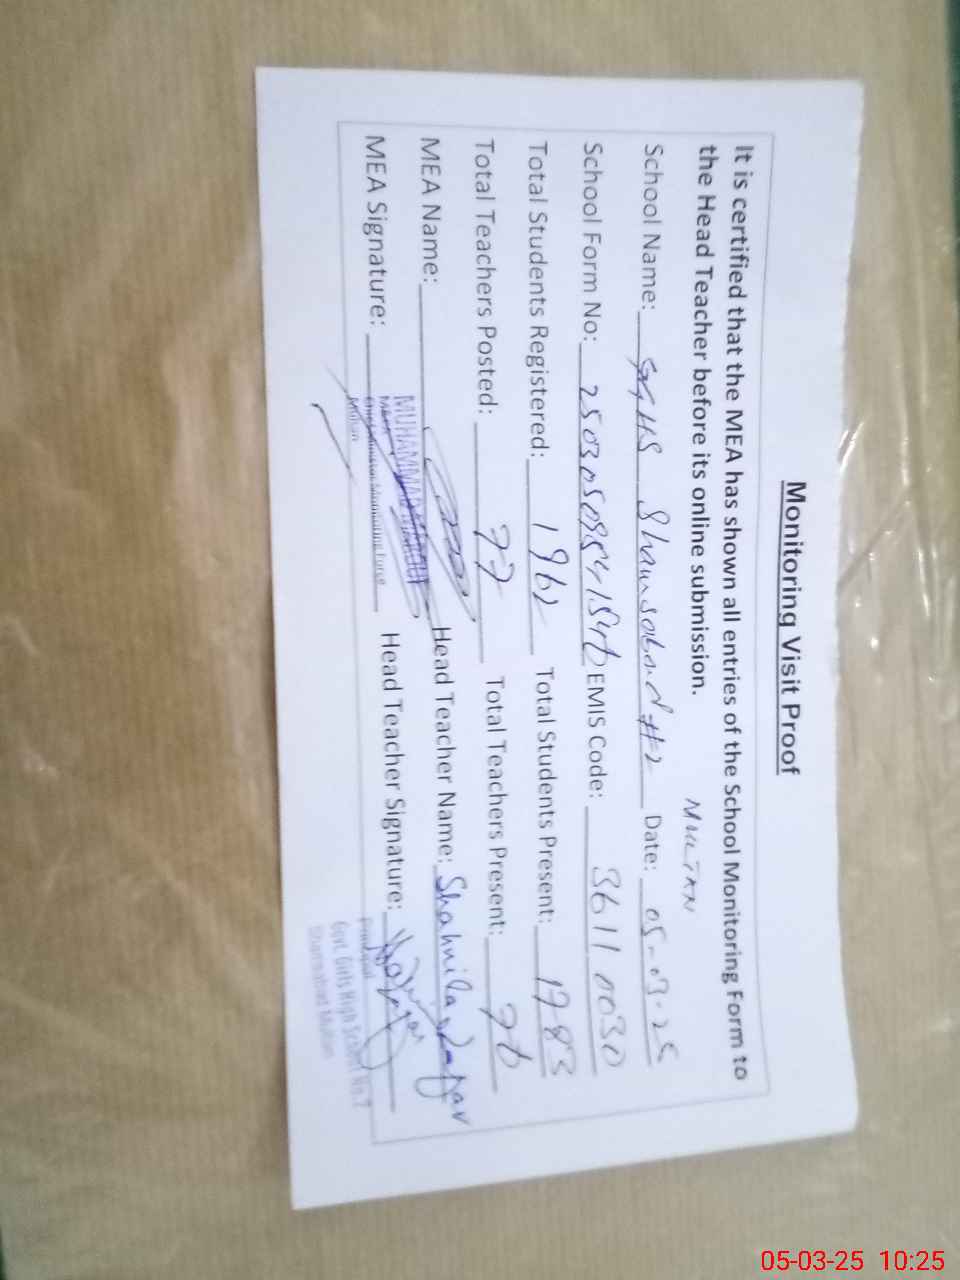 Monitoring Visit Proof
It is certified that the MEA has shown all entries of the School Monitoring Form to
the Head Teacher before its online submission.
MULTAN
School Name: GGHS Shamsabad #2 Date: 05-03-25
School Form No: EMIS Code: 36110030
Total Students Registered: 1962 Total Students Present: 1783
Total Teachers Posted: 77 Total Teachers Present: 76
MEA Name: MUHAMMAD Head Teacher Name: Shahnila Zafar
MEA Signature: Head Teacher Signature:
MEA
Chief Minister Monitoring Force
Multan
Principal
Govt. Girls High School No.2
Shamsabad Multan
05-03-25 10:25